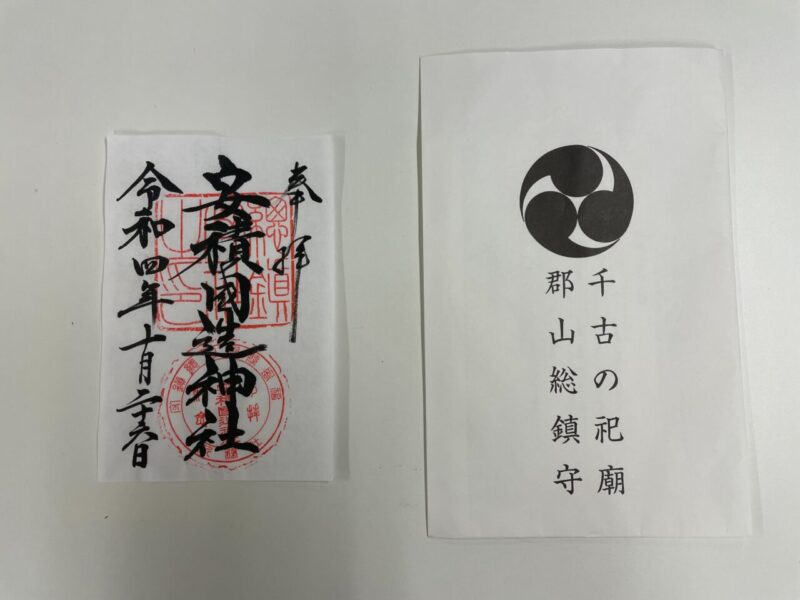 奉拝
安積国造神社
令和四年十月二十六日
千古の祀廟
郡山総鎮守